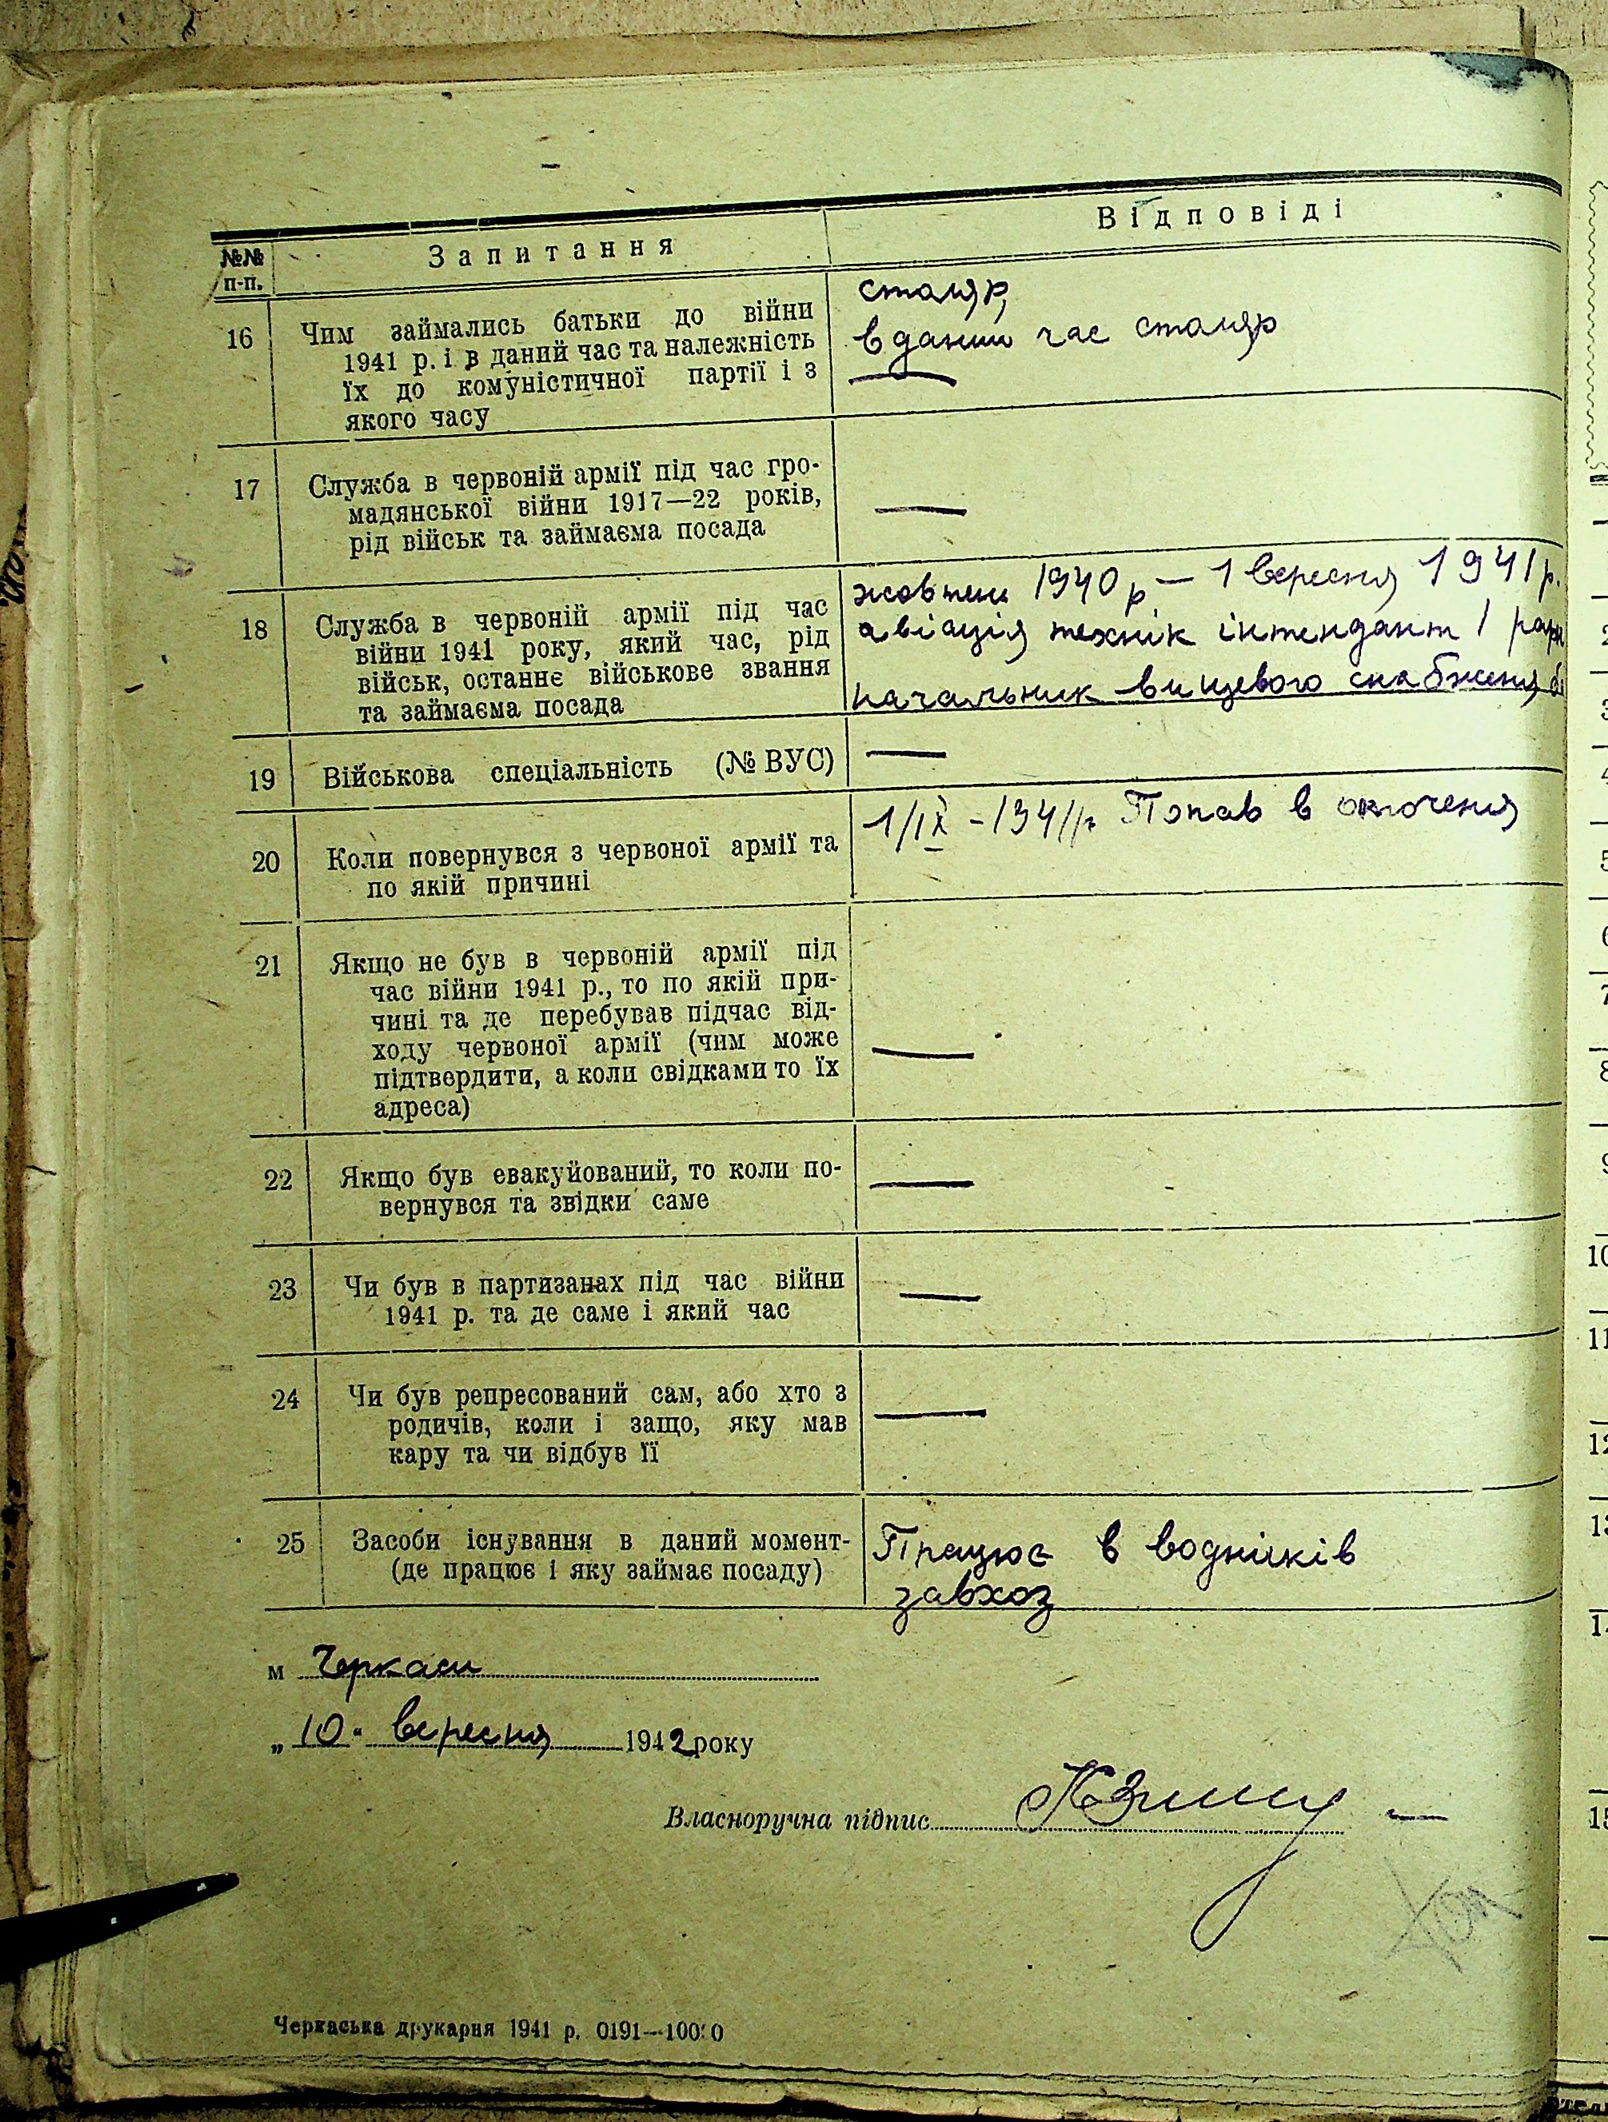 №№ п-п.
Запитання
Відповіді
16
Чим займались батьки до війни
1941 р. і в даний час та належність
їх до комуністичної партії і з
якого часу
столяр,
в даний час столяр
—
17
Служба в червоній армії під час гро-
мадянської війни 1917—22 років,
рід військ та займаєма посада
—
18
Служба в червоній армії під час
війни 1941 року, який час, рід
військ, останнє військове звання
та займаєма посада
жовтень 1940 р. — 1 вересня 1941 р.
авіація технік інтендант 1
начальник вищевого снабження
19
Військова спеціальність (№ ВУС)
—
20
Коли повернувся з червоної армії та
по якій причині
1/IX - 1941 р. Попав в оточення
21
Якщо не був в червоній армії під
час війни 1941 р., то по якій при-
чині та де перебував підчас від-
ходу червоної армії (чим може
підтвердити, а коли свідками то їх
адреса)
—
22
Якщо був евакуйований, то коли по-
вернувся та звідки саме
—
23
Чи був в партизанах під час війни
1941 р. та де саме і який час
—
24
Чи був репресований сам, або хто з
родичів, коли і защо, яку мав
кару та чи відбув її
—
25
Засоби існування в даний момент-
(де працює і яку займає посаду)
Працює в водників
завхоз
м Черкаси
„ 10 " вересня 1942 року
Власноручна підпис
Черкаська друкарня 1941 р. 0191—10000